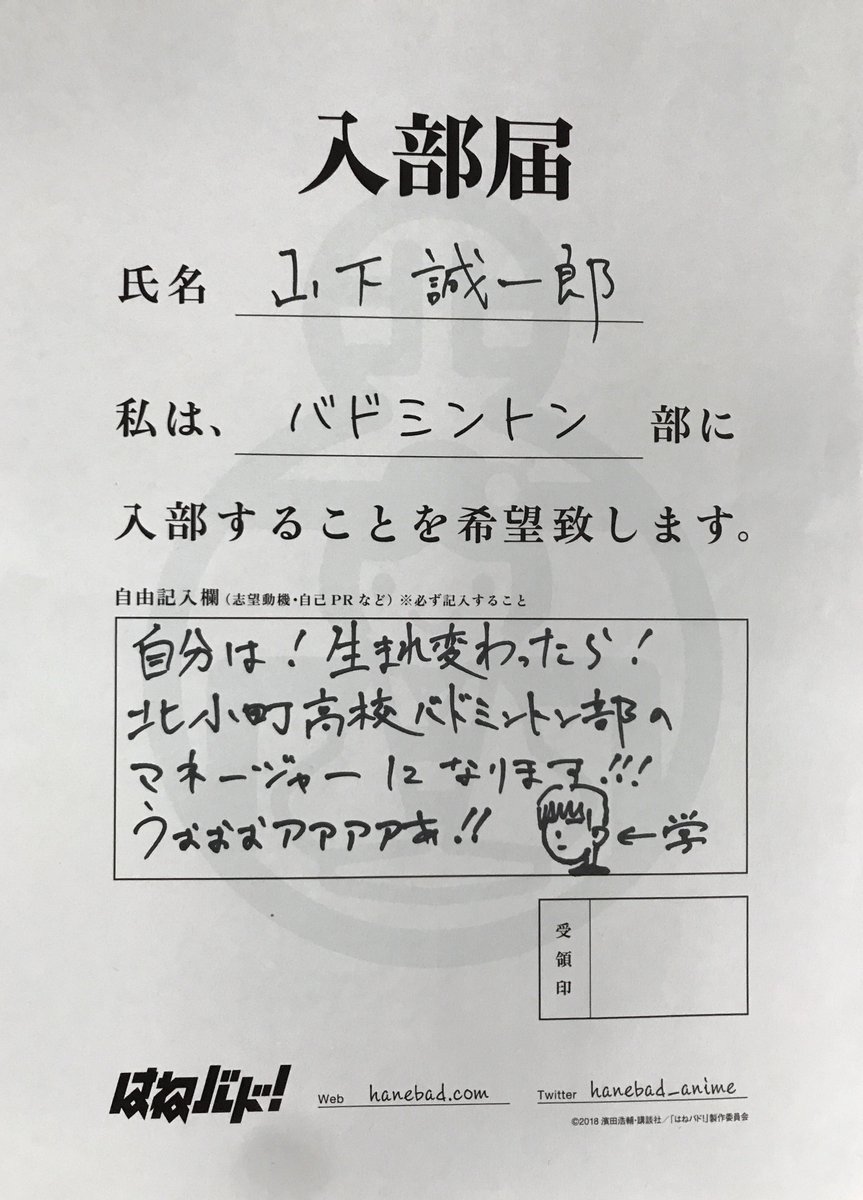 入部届
氏名 山下 誠一郎
私は、 バドミントン 部に
入部することを希望致します。
自由記入欄(志望動機・自己PRなど)※必ず記入すること
自分は!生まれ変わったら!
北小町高校バドミントン部の
マネージャーになります!!!
うぉぉぉアアアアあ!!
←学
受領印
はねバド!
Web hanebad.com
Twitter hanebad_anime
©2018 濱田浩輔・講談社/「はねバド!」製作委員会